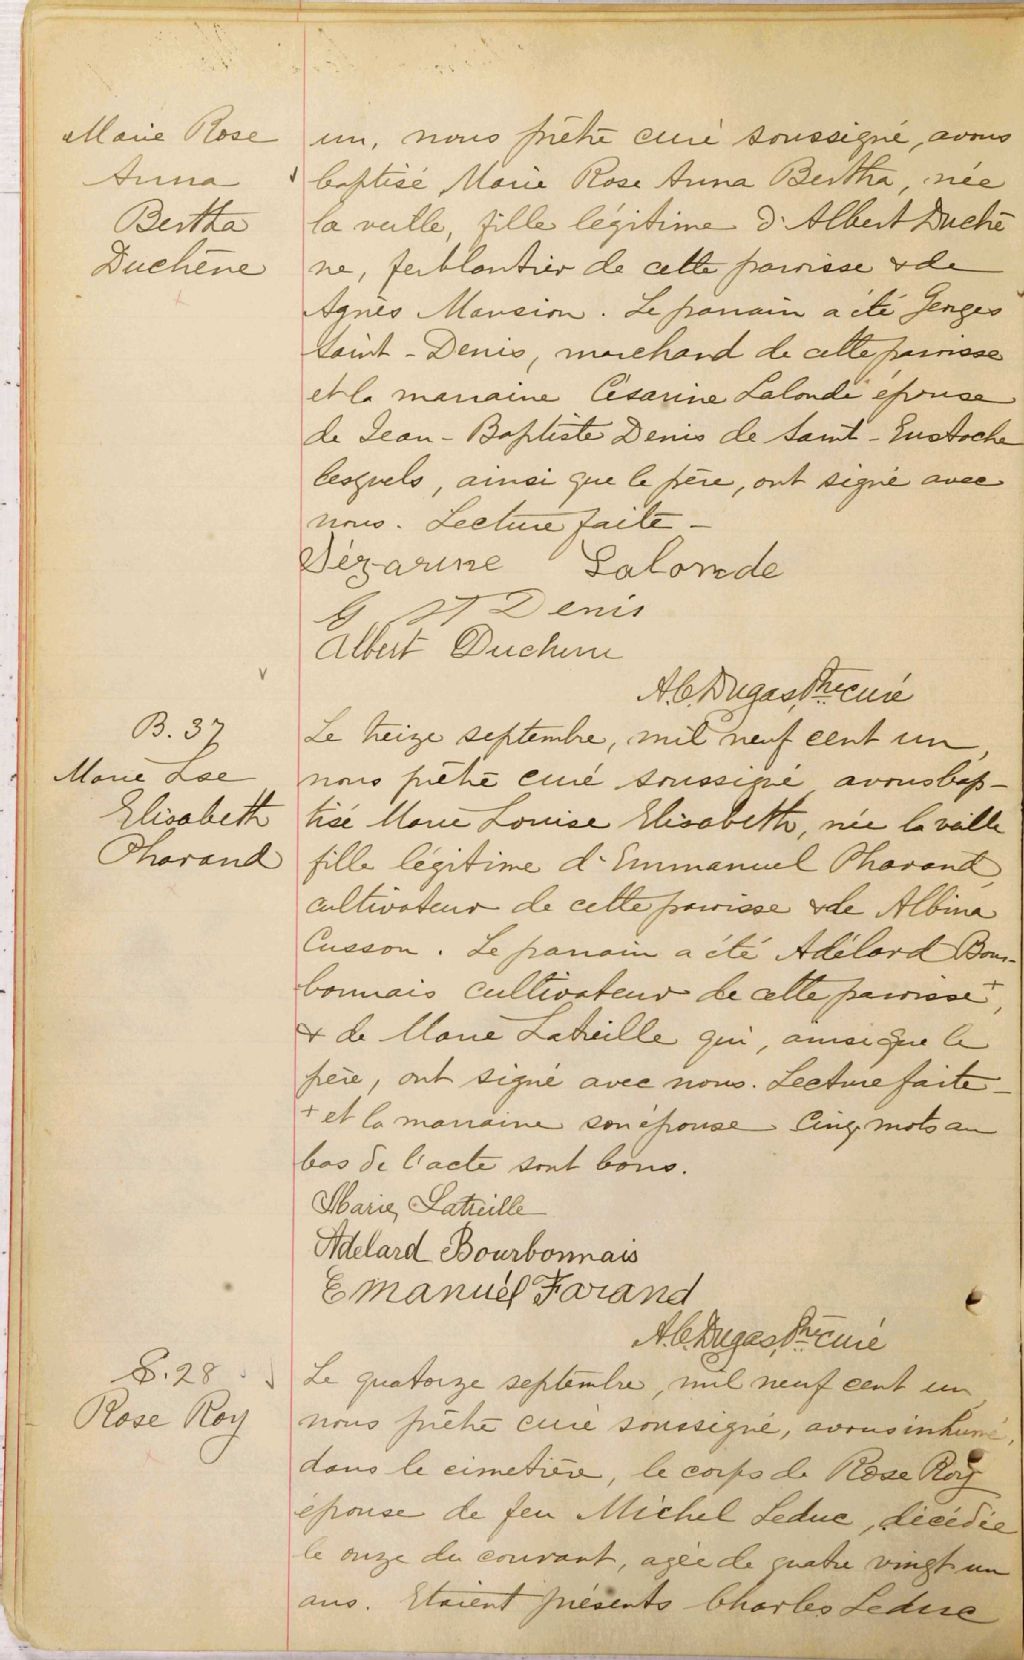 Marie Rose
Anna
Bertha
Duchêne
un, nous prêtre curé soussigné, avons
baptisé Marie Rose Anna Bertha, née
la veille, fille légitime d'Albert Duchê
ne, ferblantier de cette paroisse & de
Agnès Mansion. Le parrain a été Georges
Saint-Denis, marchand de cette paroisse
et la marraine Césarine Lalonde épouse
de Jean-Baptiste Denis de Saint-Eustache
lesquels, ainsi que le père, ont signé avec
nous. Lecture faite -
Sézarine Lalonde
G St Denis
Albert Duchene
A.C. Dugas, Ptre curé
B. 37
Marie Lse
Elisabeth
Pharand
Le treize septembre, mil neuf cent un,
nous prêtre curé soussigné avons bap-
tisé Marie Louise Elisabeth, née la veille
fille légitime d'Emmanuel Pharand,
cultivateur de cette paroisse & de Albina
Cusson. Le parrain a été Adélard Bour-
bonnais cultivateur de cette paroisse +,
& de Marie Latreille qui, ainsi que le
père, ont signé avec nous. Lecture faite -
+ et la marraine son épouse Cinq mots au
bas de l'acte sont bons.
Marie Latreille
Adelard Bourbonnais
Emanuél Farand
A.C. Dugas, Ptre curé
S. 28
Rose Roy
Le quatorze septembre, mil neuf cent un,
nous prêtre curé soussigné, avons inhumé,
dans le cimetière, le corps de Rose Roy
épouse de feu Michel Leduc, décédée
le onze du courant, agée de quatre vingt un
ans. Etaient présents Charles Leduc